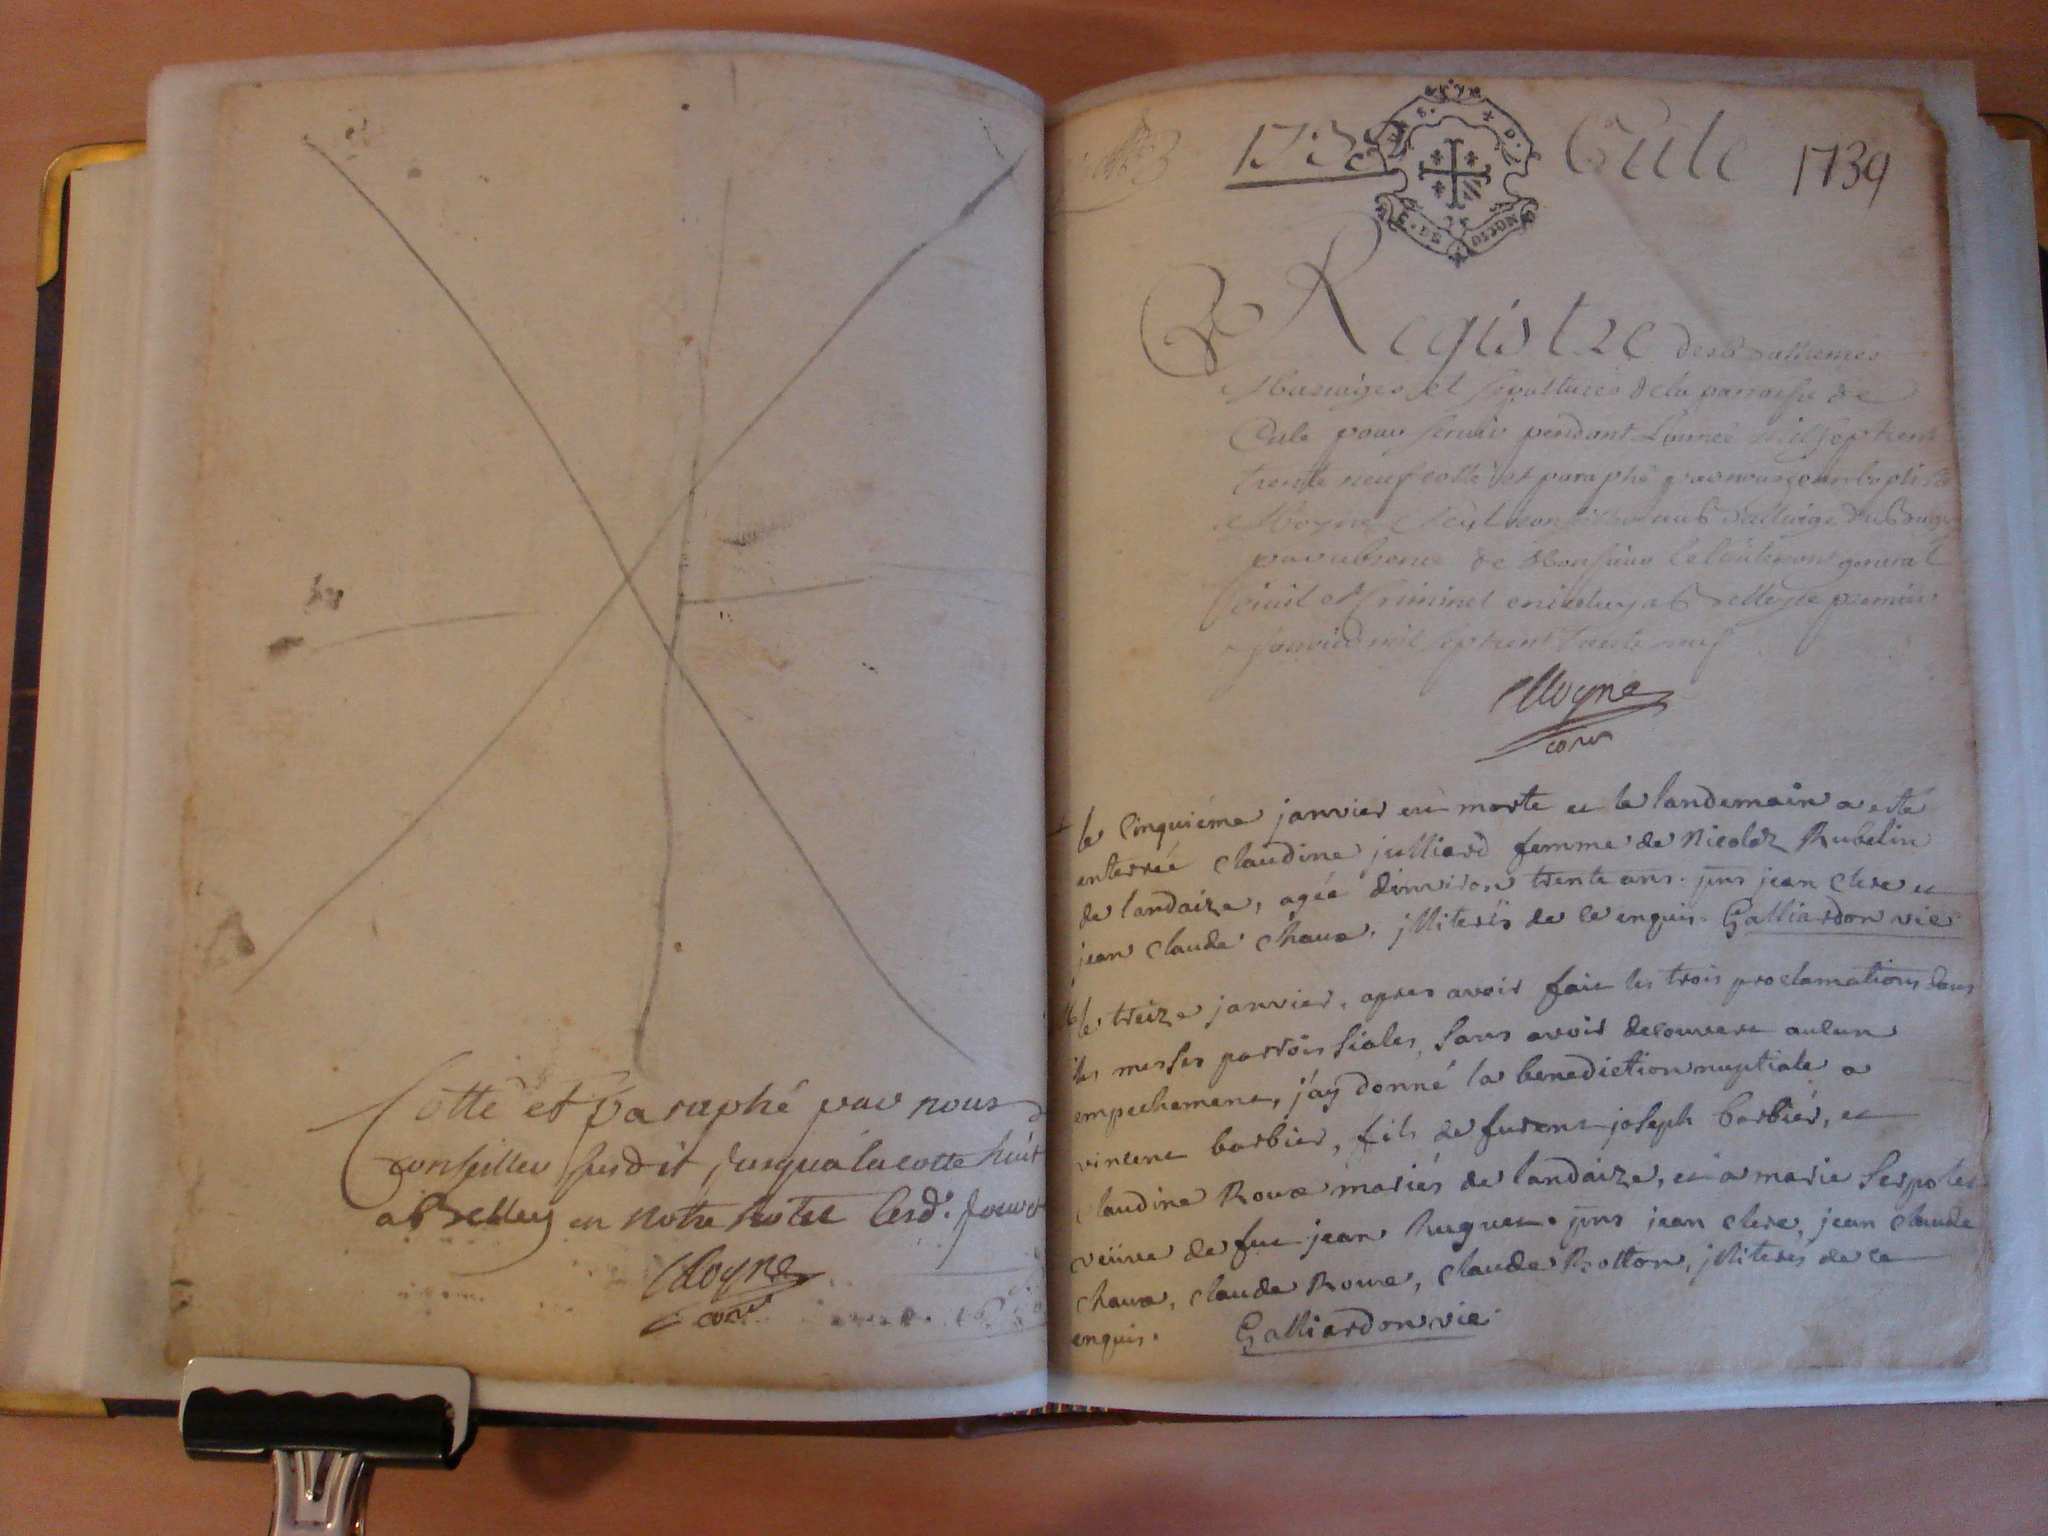 Cotté et Paraphé par nous
conseiller susdit jusqua la cotte huit
a Belley en notre hotel lesd. jour et
Moyne
con.er
1739 Cule 1739
DE DIJON
Registre des Battemes
Mariages et sepultures de la parroisse de
Cule pour servir pendant l'année mil sept cent
trente neuf cotté et paraphé par nous jean baptiste
Moyne conseiller au Balliage du Bugey
par absence de Monsieur le lieutenant general
civil et criminel a Belley le premier
janvier mil sept cent trente neuf
Moyne
con.er
le cinquiéme janvier est morte et le landemain a été
enterrée claudine julliard femme de Nicolas Rubelin
de landaize, agée dinviron trente ans. pns jean clere et
jean claude chaux, jlliterés de ce enquis. Galliardon vic
le treize janvier, apres avoir fait les trois proclamations dans
les messes parroissiales, sans avoir decouvert aucun
empechement, j'ay donné la benediction nuptiale a
vincent barbier, fils de furent joseph barbier, et
claudine Roux mariés de landaize, et a marie serpolet
veüve de fut jean hugues. pns jean clere, jean claude
chaux, claude Roux, claude Botton, jlliterés de ce
enquis. Galliardon vic